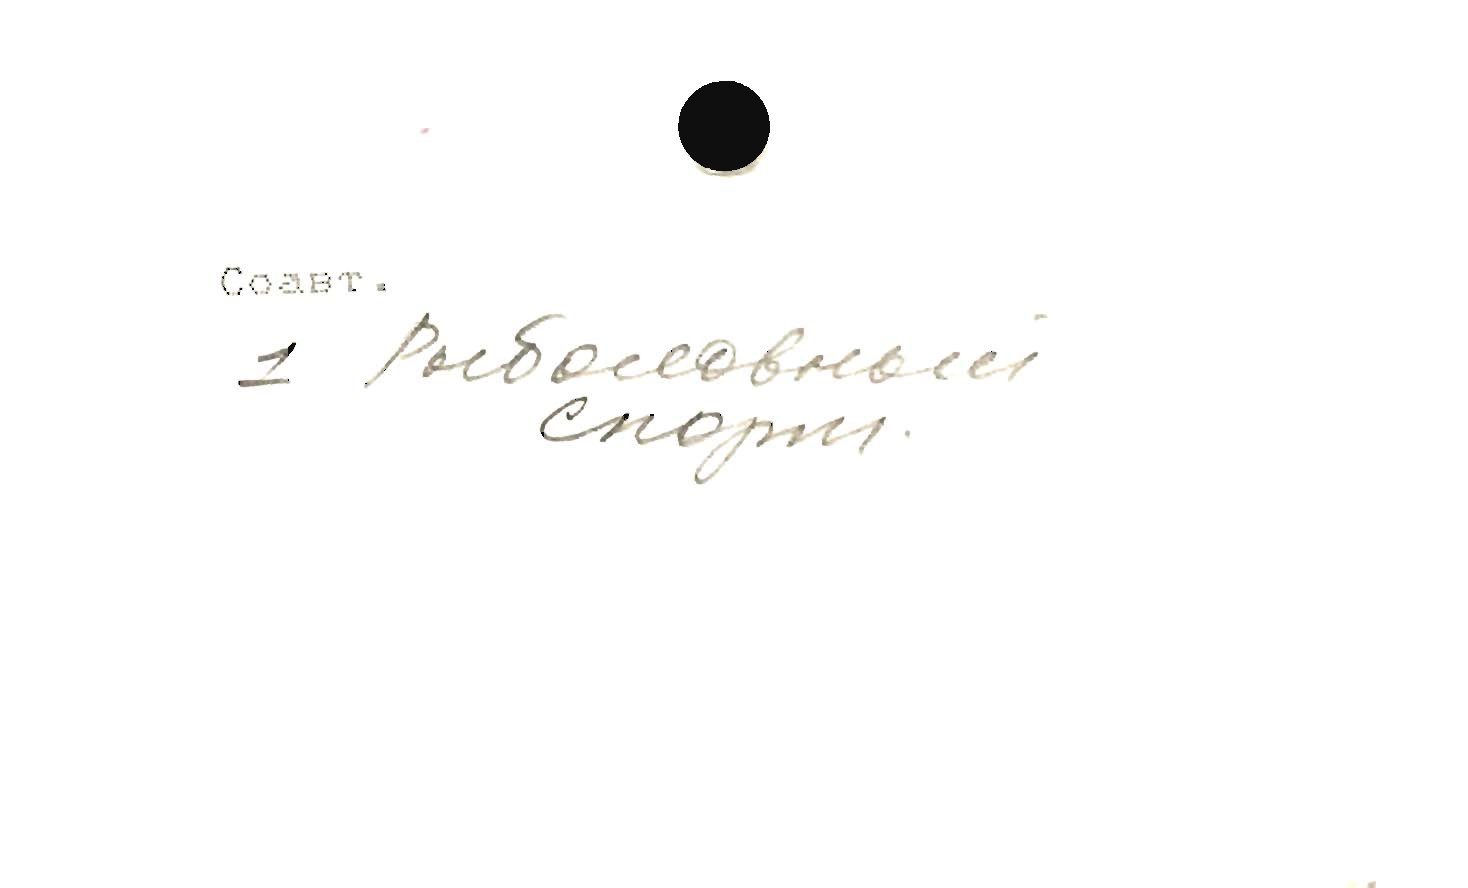 Соавт.
1 Рыболовный
спорт.